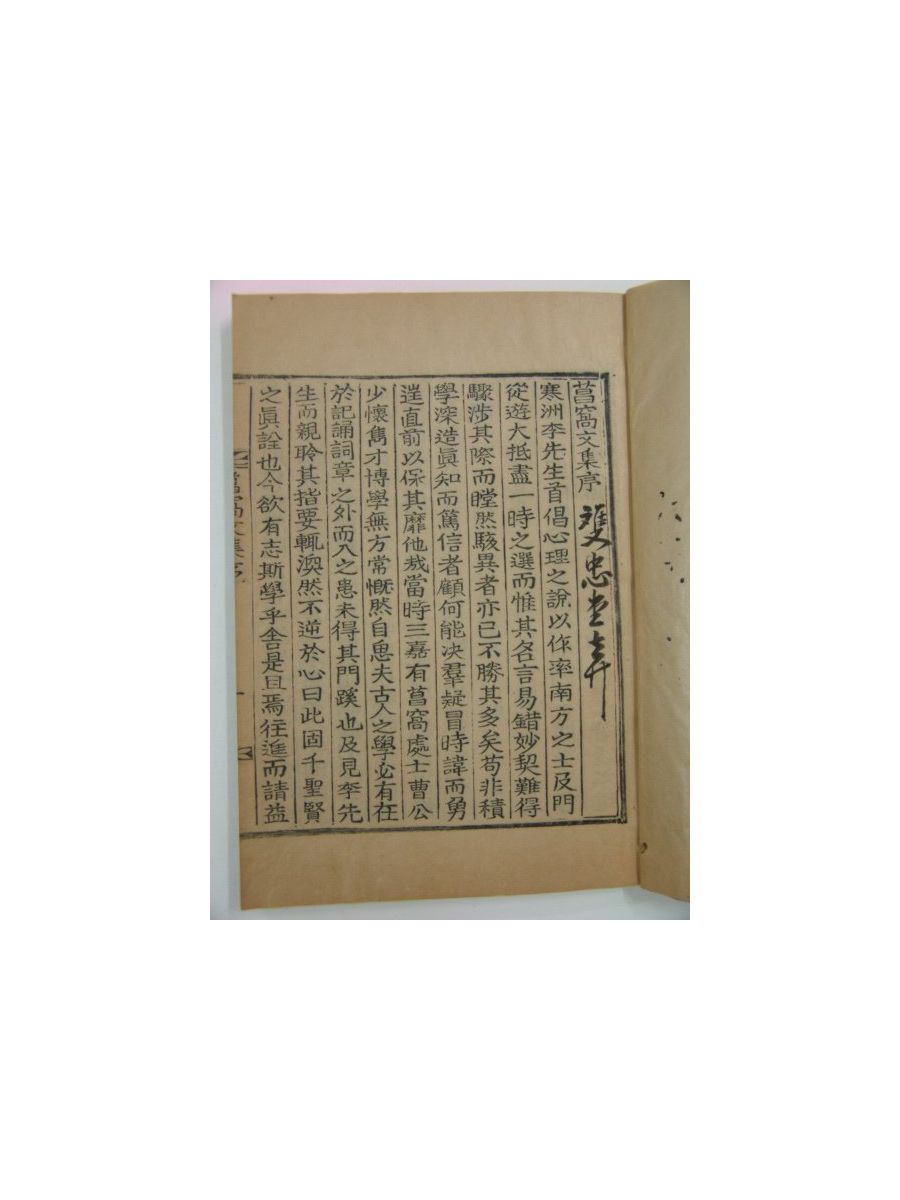 菖窩文集序 雙忠堂弆
寒洲李先生首倡心理之說以作率南方之士及門
從遊大抵盡一時之選而惟其名言易錯妙契難得
驟涉其際而瞠然駭異者亦已不勝其多矣苟非積
學深造眞知而篤信者顧何能决羣疑冒時諱而勇
逞直前以保其靡他哉當時三嘉有菖窩處士曹公
少懷雋才博學無方常慨然自恖夫古人之學必有在
於記誦詞章之外而入之患未得其門蹊也及見李先
生而親聆其指要輒渙然不逆於心曰此固千聖賢
之眞詮也今欲有志斯學乎舍是且焉往進而請益
菖窩文集序